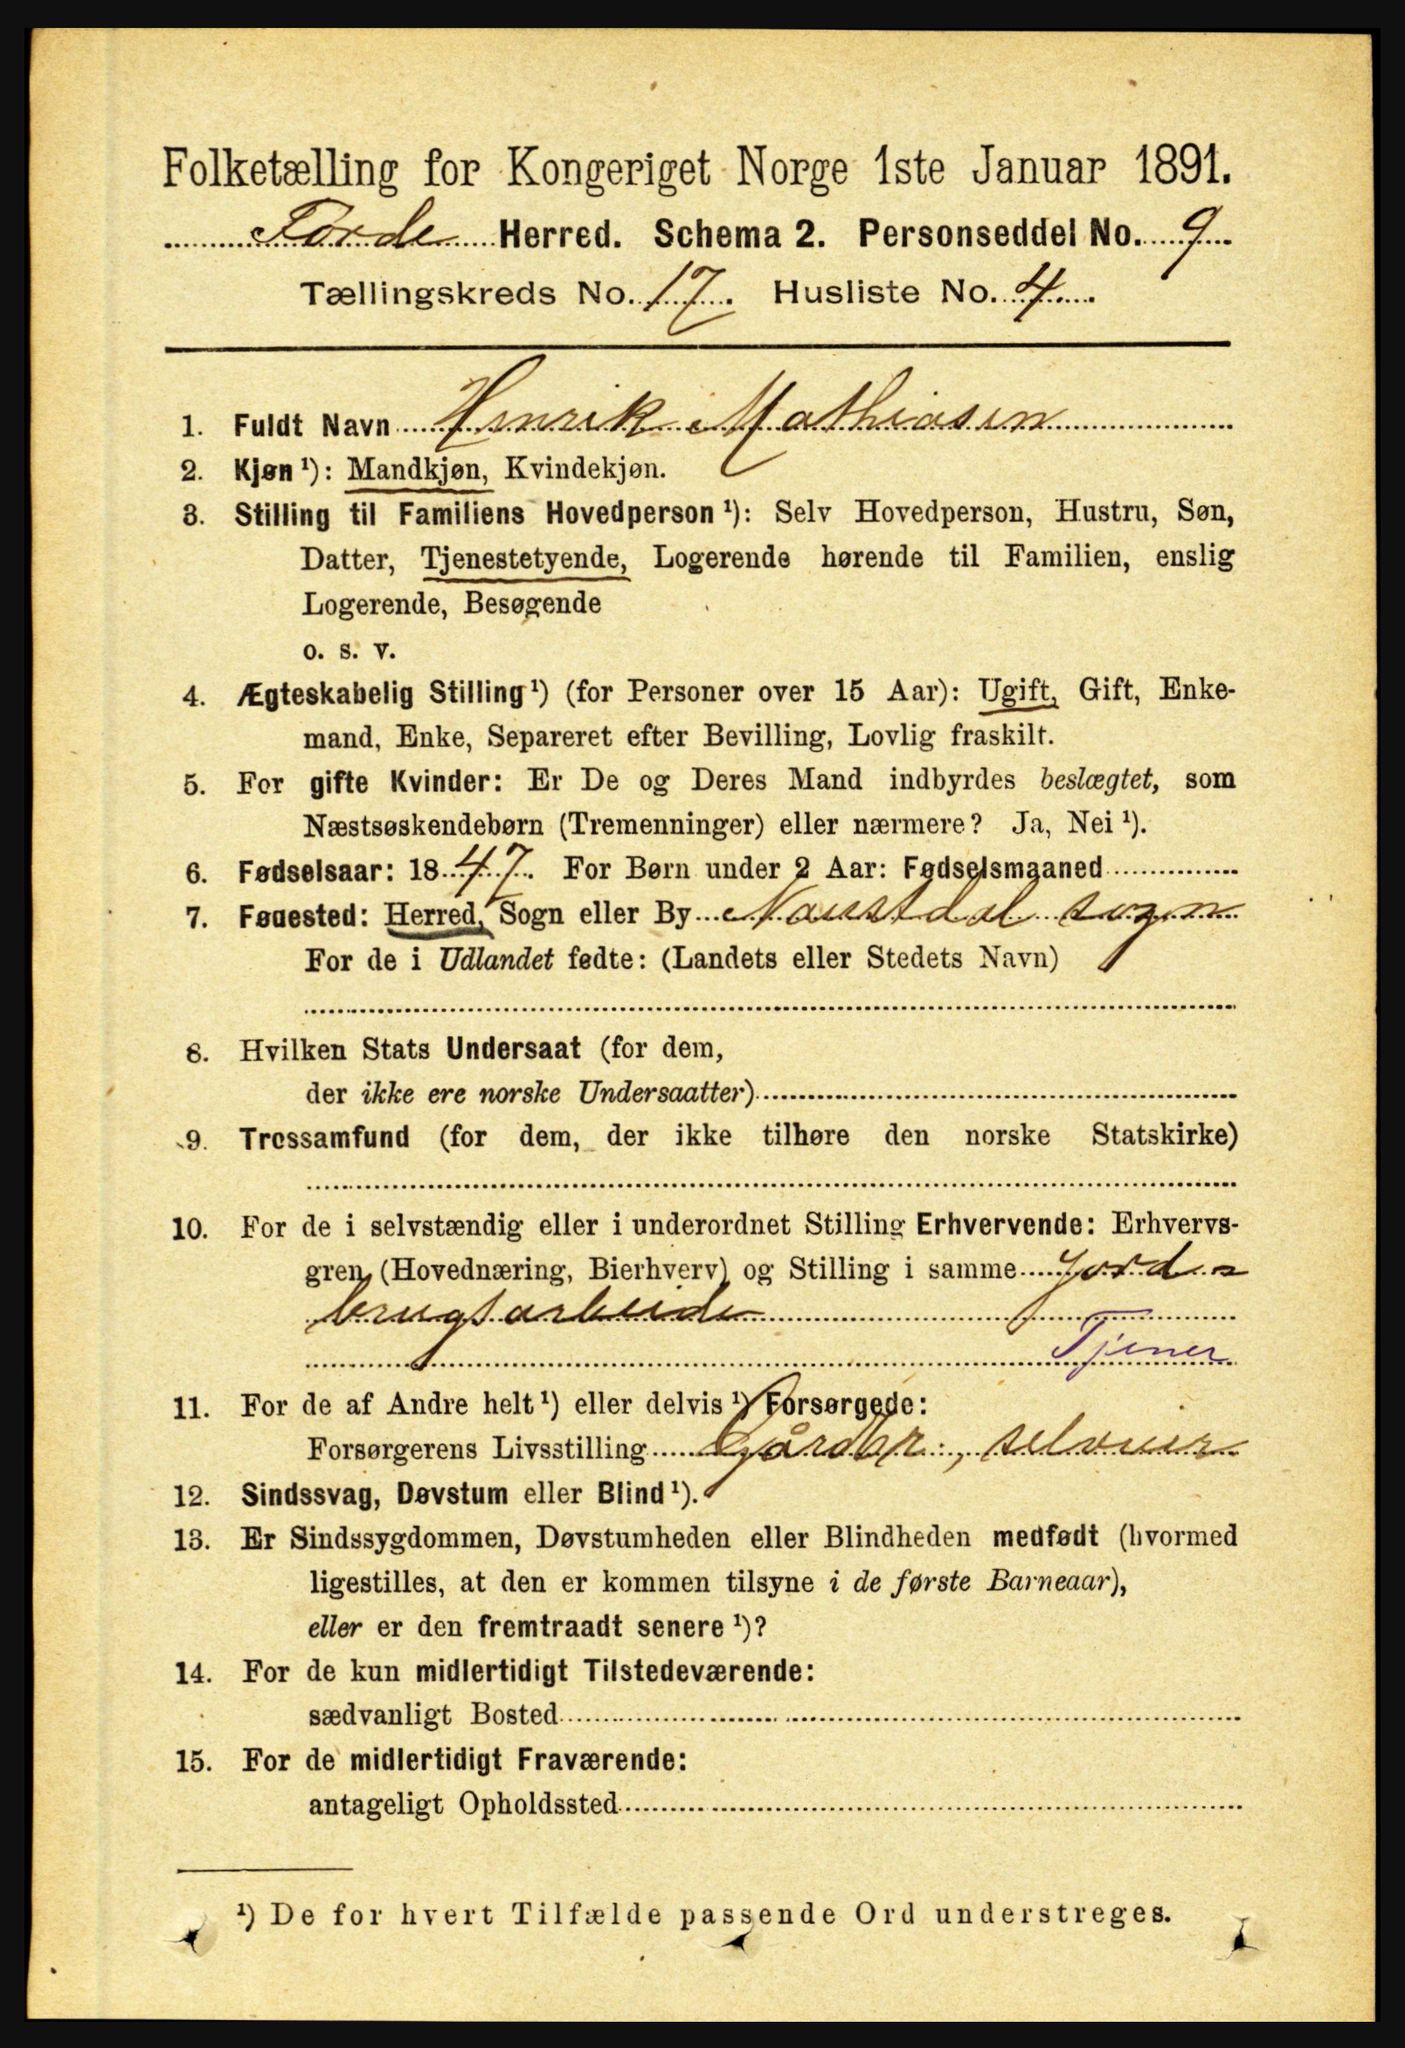 Folketælling for Kongeriget Norge 1ste Januar 1891.
Førde Herred. Schema 2. Personseddel No. 9
Tællingskreds No. 17. Husliste No. 4.
1. Fuldt Navn Henrik Mathiasen
2. Kjøn ¹): Mandkjøn, Kvindekjøn.
3. Stilling til Familiens Hovedperson ¹): Selv Hovedperson, Hustru, Søn,
Datter, Tjenestetyende, Logerende hørende til Familien, enslig
Logerende, Besøgende
o. s. v.
4. Ægteskabelig Stilling ¹) (for Personer over 15 Aar): Ugift, Gift, Enke-
mand, Enke, Separeret efter Bevilling, Lovlig fraskilt.
5. For gifte Kvinder: Er De og Deres Mand indbyrdes beslægtet, som
Næstsøskendebørn (Tremenninger) eller nærmere? Ja, Nei ¹).
6. Fødselsaar: 1847. For Børn under 2 Aar: Fødselsmaaned
7. Fødested: Herred, Sogn eller By Naustdal sogn
For de i Udlandet fødte: (Landets eller Stedets Navn)
8. Hvilken Stats Undersaat (for dem,
der ikke ere norske Undersaatter)
9. Trossamfund (for dem, der ikke tilhøre den norske Statskirke)
10. For de i selvstændig eller i underordnet Stilling Erhvervende: Erhvervs-
gren (Hovednæring, Bierhverv) og Stilling i samme Jord-
brugsarbeide
Tjener
11. For de af Andre helt ¹) eller delvis ¹) Forsørgede:
Forsørgerens Livsstilling Gårdbr:, selveier
12. Sindssvag, Døvstum eller Blind ¹).
13. Er Sindssygdommen, Døvstumheden eller Blindheden medfødt (hvormed
ligestilles, at den er kommen tilsyne i de første Barneaar),
eller er den fremtraadt senere ¹)?
14. For de kun midlertidigt Tilstedeværende:
sædvanligt Bosted
15. For de midlertidigt Fraværende:
antageligt Opholdssted
¹) De for hvert Tilfælde passende Ord understreges.